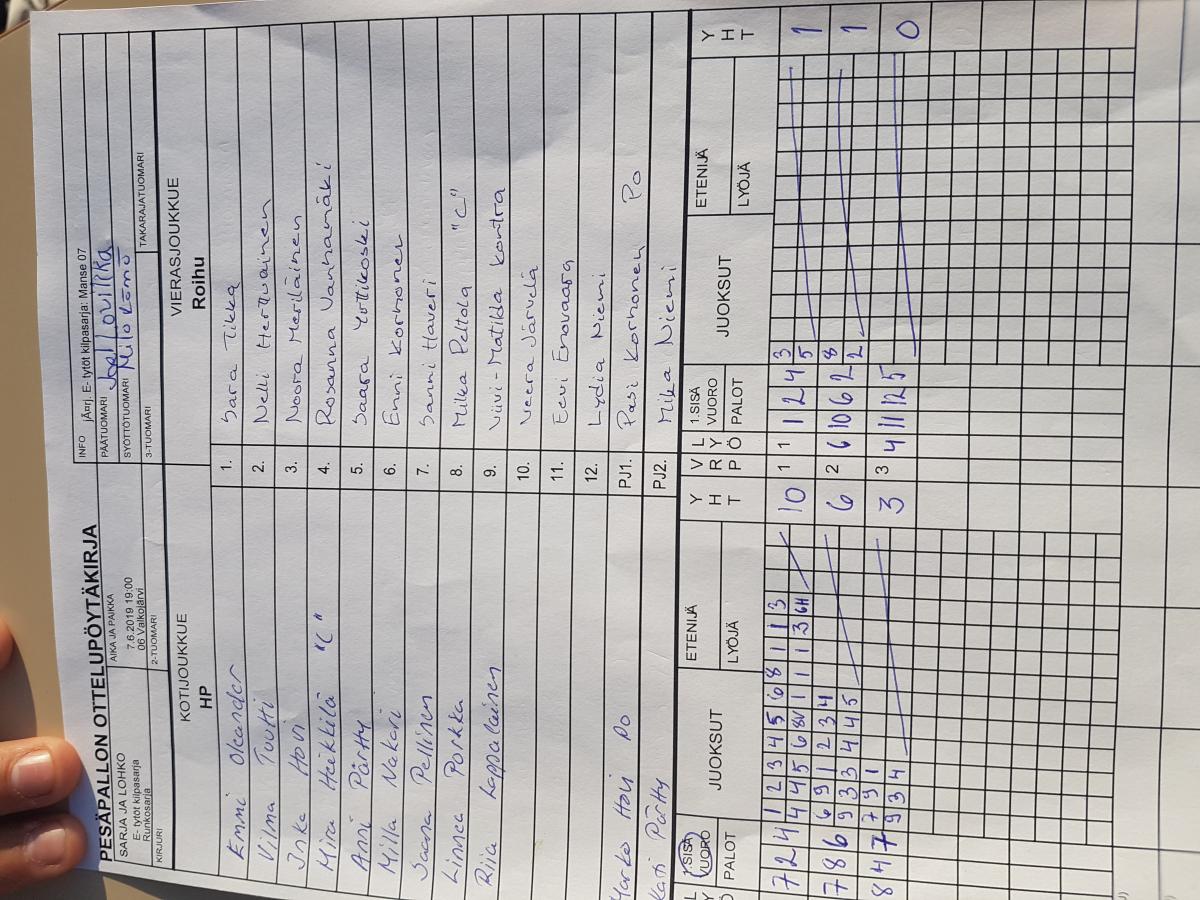 PESÄPALLON OTTELUPÖYTÄKIRJA
INFO jÄ¤rj. E- tytöt kilpasarja: Manse 07
SARJA JA LOHKO
E- tytöt kilpasarja
Runkosarja
AIKA JA PAIKKA
7.6.2019 19:00
06 Valkojärvi
PÄÄTUOMARI
SYÖTTÖTUOMARI
KIRJURI
2-TUOMARI
3-TUOMARI
TAKARAJATUOMARI
KOTIJOUKKUE
HP
VIERASJOUKKUE
Roihu
Emmi Oleander 1. Sara Tikka
Vilma Tuutti 2. Nelli Herttuainen
Inka Hovi 3. Noora Meriläinen
Mira Heikkilä "C" 4. Rosanna Vanhamäki
Anni Pärtty 5. Saara Yrttikoski
Milla Nakari 6. Enni Korhonen
Saana Pellinen 7. Sanni Haveri
Linnea Porkka 8. Milka Peltola "C"
Riia Loppalainen 9. Viivi-Matilda Kontra
10. Veera Järvelä
11. Eevi Enovaara
12. Lydia Niemi
Marko Hovi PO PJ1. Pasi Korhonen PO
Kati Pärtty PJ2. Mika Niemi
L Y Ö 1.SISÄ VUORO PALOT JUOKSUT ETENIJÄ LYÖJÄ Y H T V R P L Y Ö 1.SISÄ VUORO PALOT JUOKSUT ETENIJÄ LYÖJÄ Y H T
1 2 3 4 5 6 8 1 1 3 3
7 2 4 10 1 1 1 2 4 1
4 4 5 6 8V 1 1 1 3 6H 5
6 9 1 2 3 4 8
7 8 6 6 2 6 10 6 2 1
9 3 3 4 4 5 2
7 9 1
8 4 7 3 3 4 11 12 5 0
9 3 4